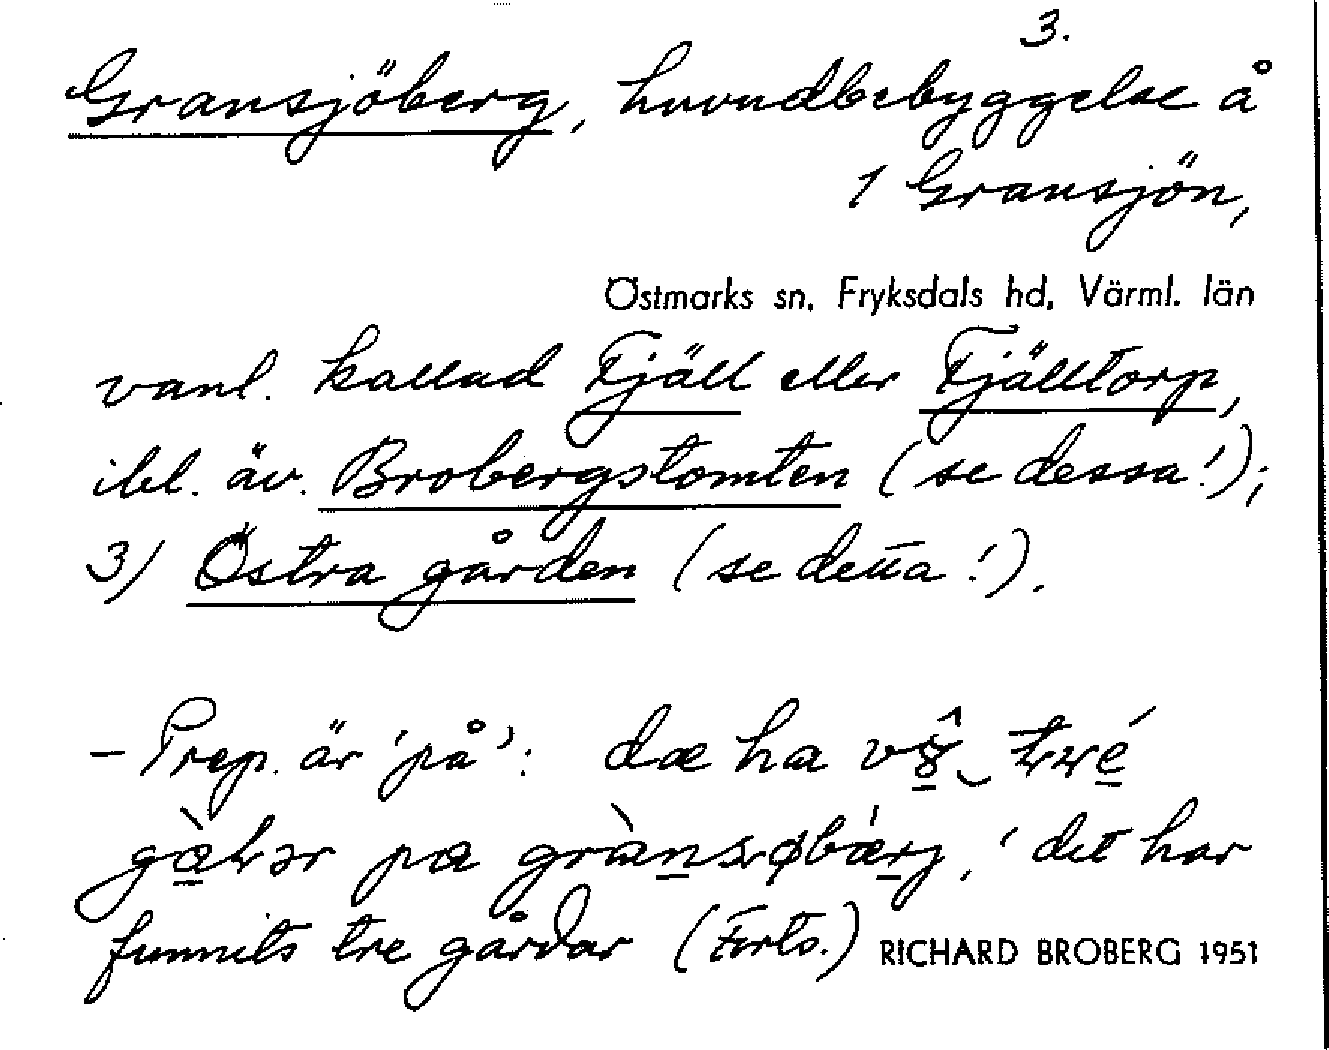 3.
Gransjöberg, huvudbebyggelse å
1 Gransjön,
Östmarks sn, Fryksdals hd, Värml. län
vanl. kallad Fjäll eller Fjälltorp,
ibl. äv. Brobergstomten (se dessa!);
3) Östra gården (se detta!).
– Prep. är 'på': dæ ha
pæ 'det har
funnits tre gårdar (Forts.) RICHARD BROBERG 1951